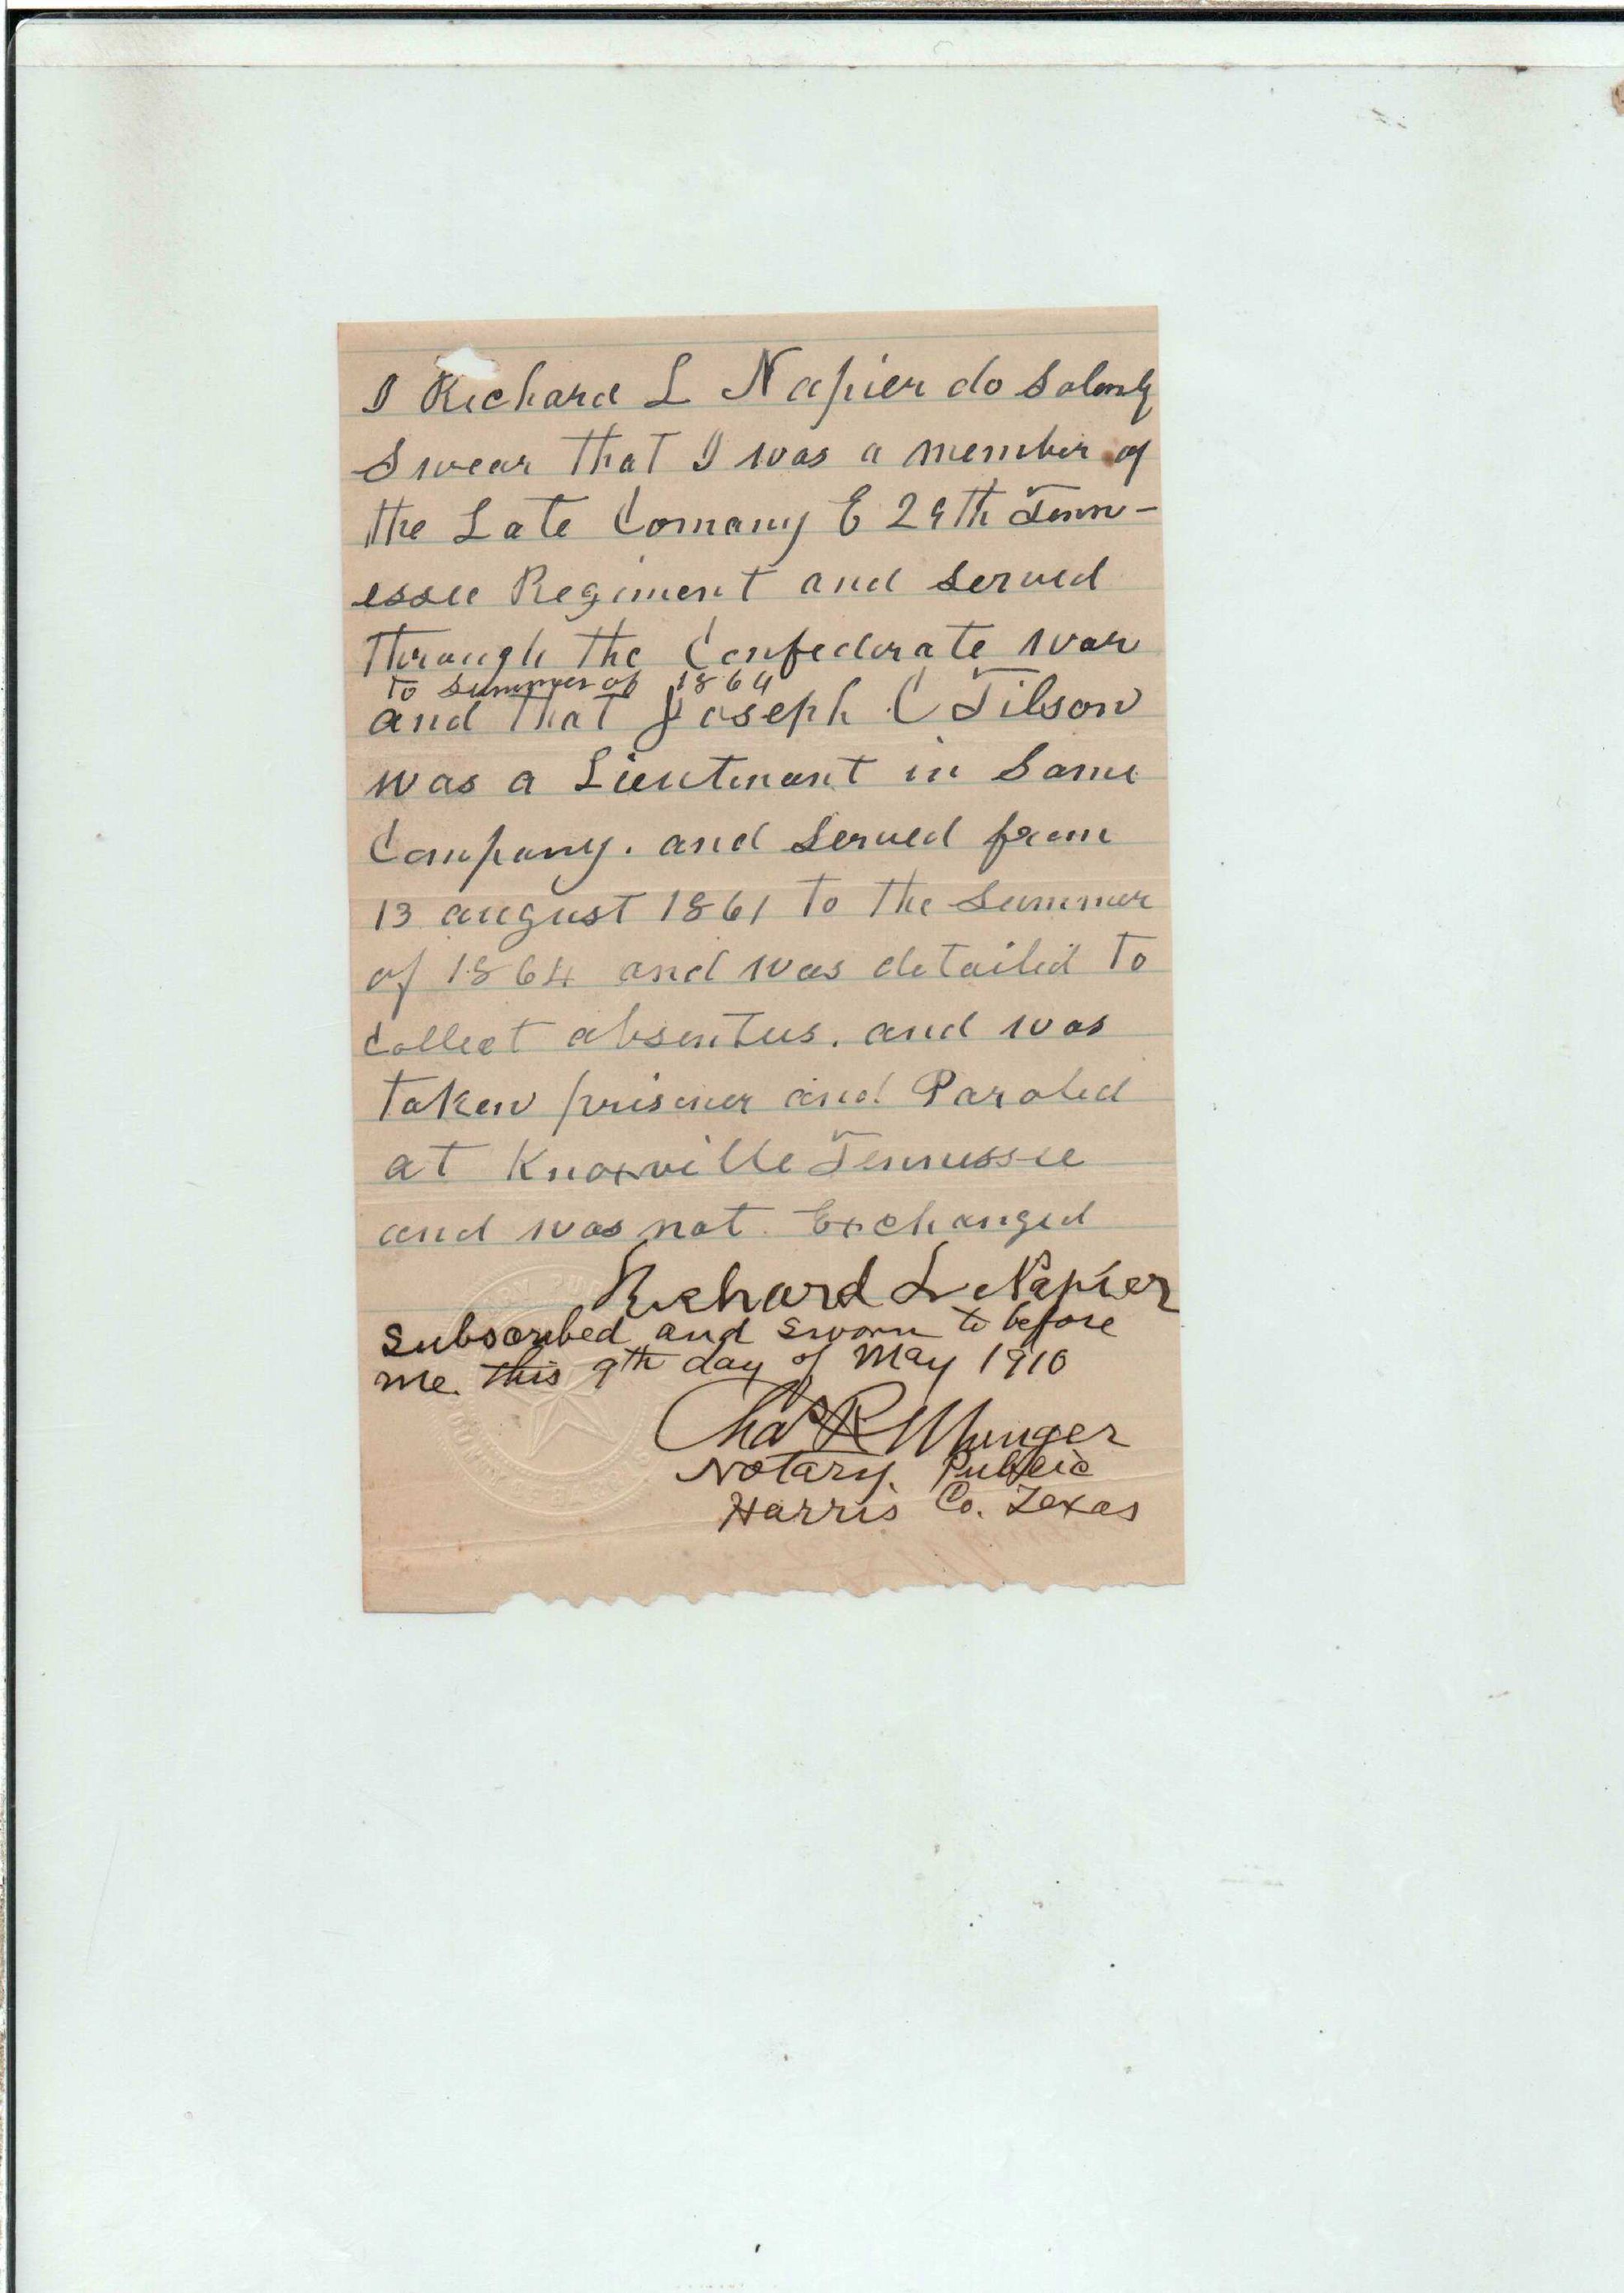 I Richard L Napier do Solemly
Swear that I was a member of
the Late Comany E 29th Tenn-
essee Regiment and served
through the Confederate war
to summer of 1864
and that Joseph C Tilson
was a Lieutenant in Same
Company. and Served from
13 august 1861 to the Summer
of 1864 and was detailed to
Collect absentees. and was
taken prisoner and Paroled
at Knoxville Tennessee
and was not Exchanged
Richard L Napier
Subscribed and sworn to before
me this 9th day of May 1910
Chas R Munger
Notary Public
Harris Co. Texas